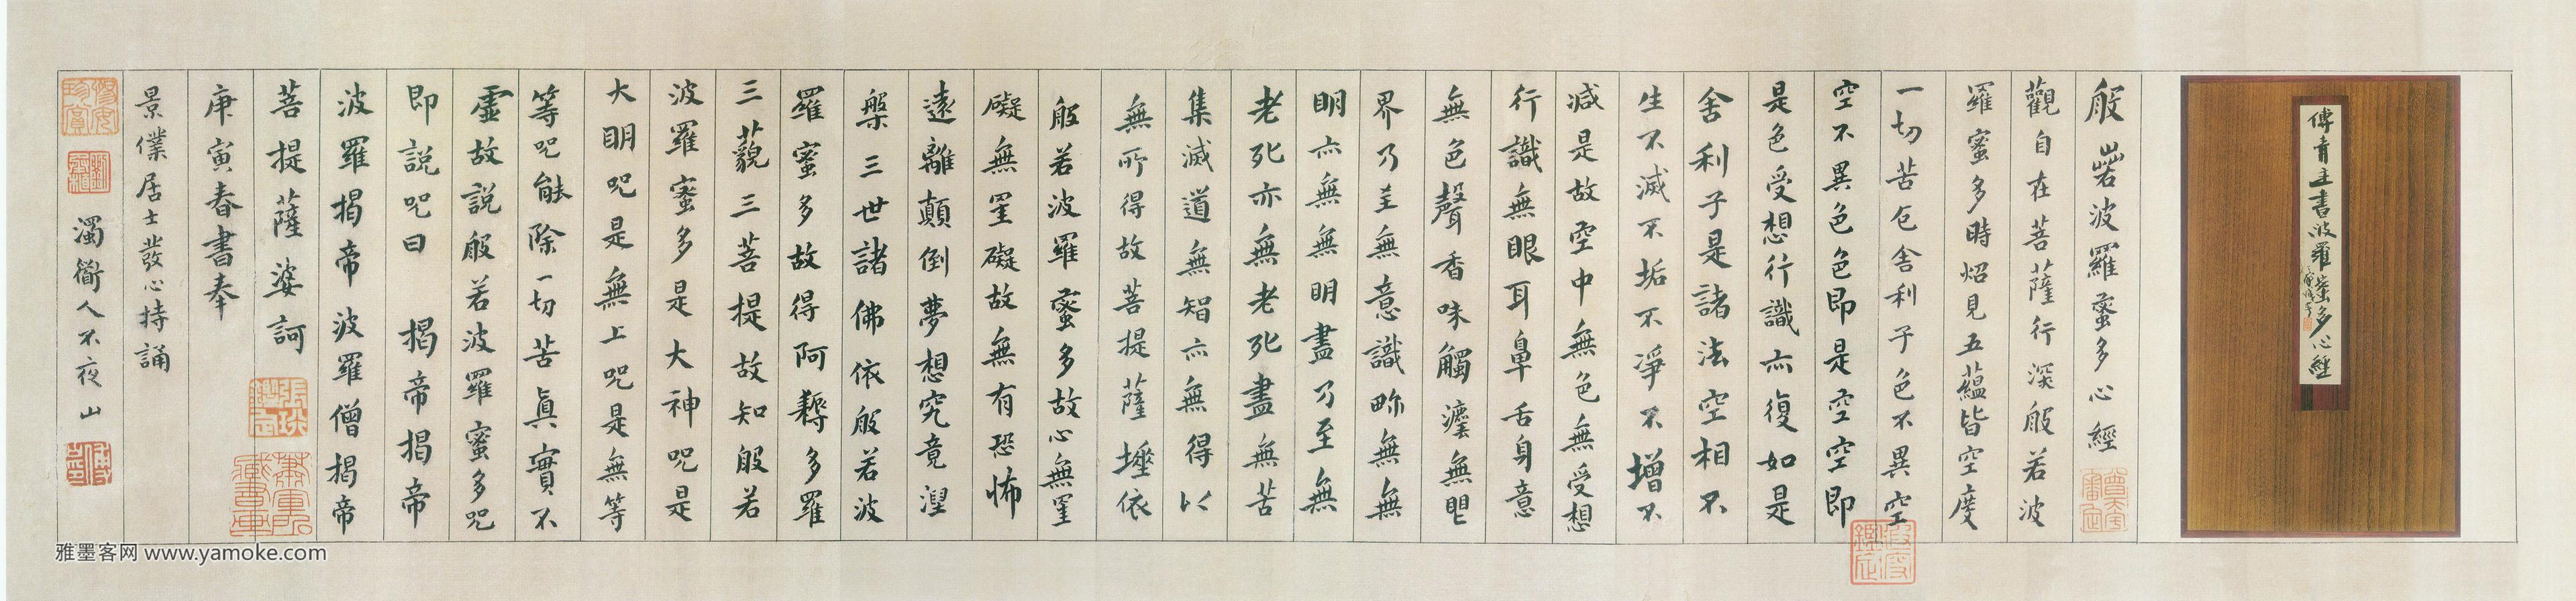 傅青主書波羅蜜多心經
般若波羅蜜多心經
觀自在菩薩行深般若波
羅蜜多時炤見五蘊皆空度
一切苦厄舍利子色不異空
空不異色色即是空空即
是色受想行識亦復如是
舍利子是諸法空相不
生不滅不垢不淨不增不
減是故空中無色無受想
行識無眼耳鼻舌身意
無色聲香味觸灋無眼
界乃至無意識界無無
明亦無無明盡乃至無
老死亦無老死盡無苦
集滅道無智亦無得以
無所得故菩提薩埵依
般若波羅蜜多故心無罣
礙無罣礙故無有恐怖
遠離顛倒夢想究竟涅
槃三世諸佛依般若波
羅蜜多故得阿耨多羅
三藐三菩提故知般若
波羅蜜多是大神呪是
大明呪是無上呪是無等
等呪能除一切苦真實不
虛故說般若波羅蜜多呪
即說呪曰 揭帝揭帝
波羅揭帝波羅僧揭帝
菩提薩婆訶
庚寅春書奉
景僕居士發心持誦
濁衟人不夜山
雅墨客网 www.yamoke.com